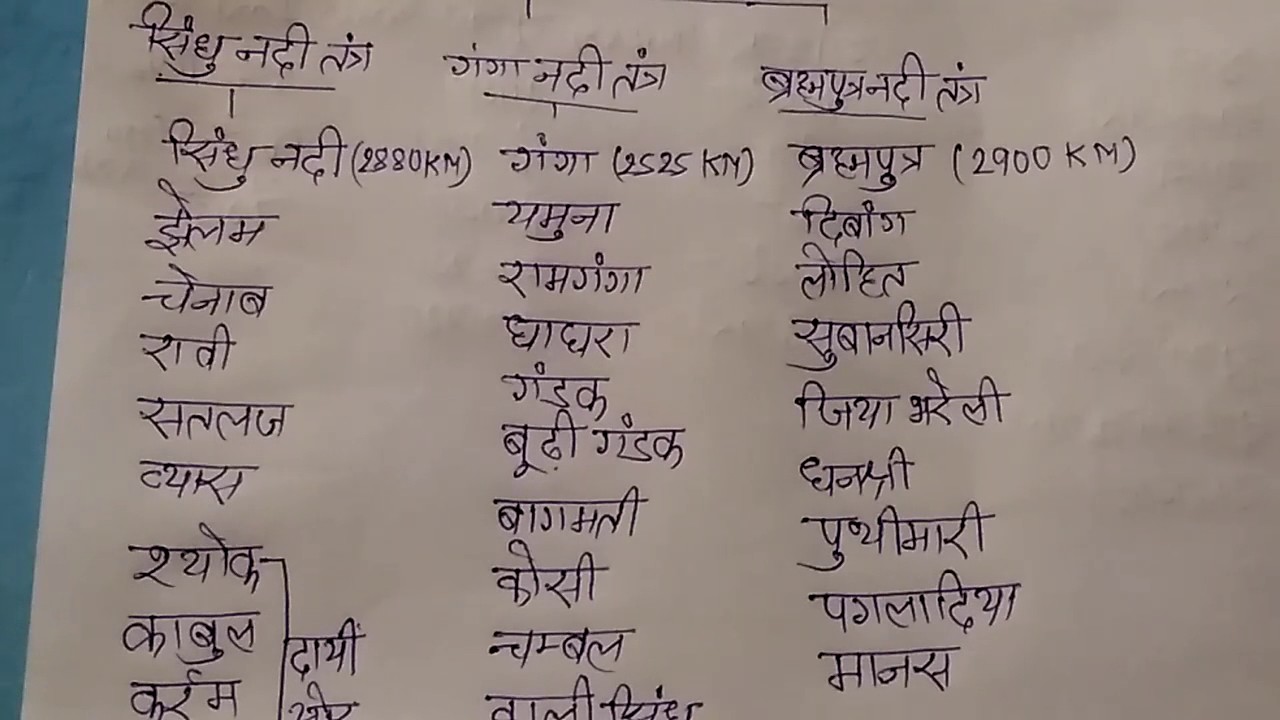 सिंधु नदी तंत्र
सिंधु नदी (2880KM)
झेलम
चेनाब
रावी
सतलज
व्यास
श्योक
काबुल
कुर्रम
दायीं
ओर
गंगा नदी तंत्र
गंगा (2525 KM)
यमुना
रामगंगा
घाघरा
गंडक
बूढ़ी गंडक
बागमती
कोसी
चम्बल
काली सिंध
ब्रह्मपुत्र नदी तंत्र
ब्रह्मपुत्र (2900 KM)
दिबांग
लोहित
सुबानसिरी
जिया भरेली
धनश्री
पुथीमारी
पगलादिया
मानस